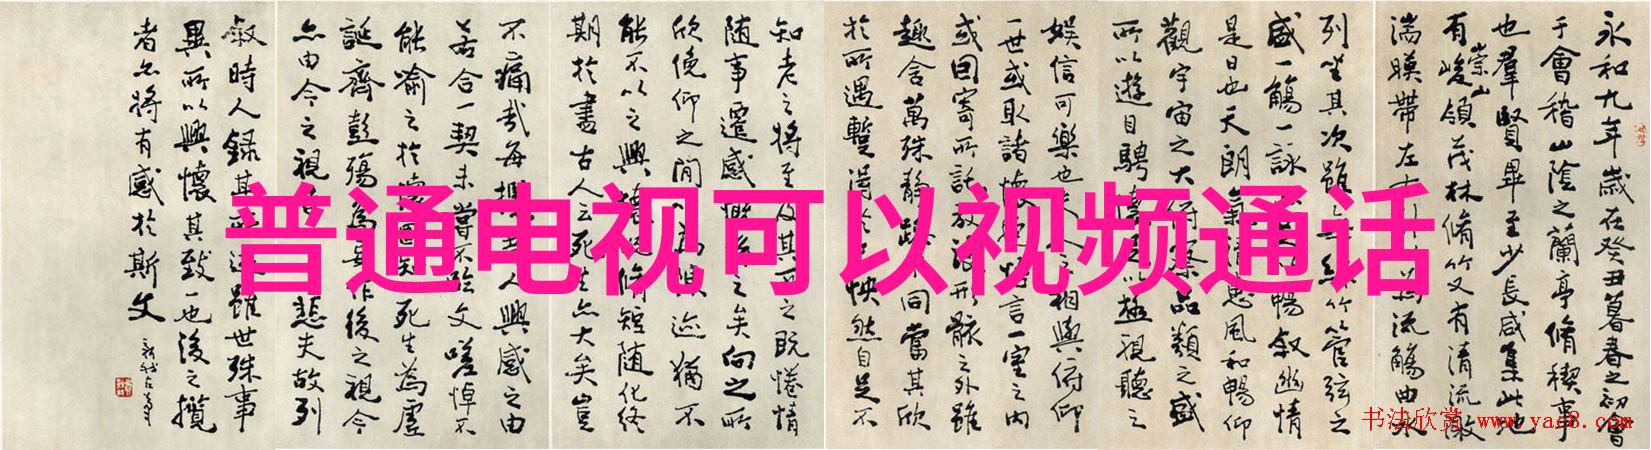 永和九年歲在癸丑暮春之初會
于會稽山陰之蘭亭脩稧事
也羣賢畢至少長咸集此地
有崇山峻領茂林脩竹又有清流激
湍暎帶左右引以為流觴曲水
列坐其次雖無絲竹管弦之
盛一觴一詠足以暢敘幽情
是日也天朗氣清惠風和暢仰
觀宇宙之大俯察品類之盛
所以遊目騁懷足以極視聽之
娛信可樂也夫人之相與俯仰
一世或取諸懷抱悟言一室之內
或因寄所託放浪形骸之外雖
趣舍萬殊靜躁不同當其欣
於所遇暫得於己怏然自足不
知老之將至及其所之既惓情
隨事遷感慨係之矣向之所
欣俛仰之間以為陳迹猶不
能不以之興懷況脩短隨化終
期於盡古人云死生亦大矣豈
不痛哉每攬昔人興感之由
若合一契未嘗不臨文嗟悼不
能喻之於懷固知死生為虛
誕齊彭殤為妄作後之視今
亦由今之視昔悲夫故列
敘時人錄其所述雖世殊事
異所以興懷其致一也後之攬
者亦將有感於斯文
普通电视可以视频通话
书法欣赏 www.yac8.com